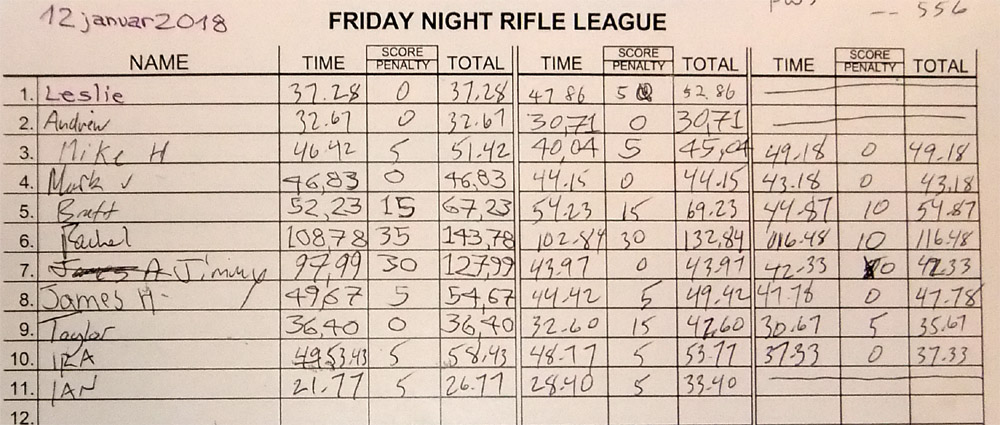 12 januar 2018
-- 556
FRIDAY NIGHT RIFLE LEAGUE
NAME TIME SCORE PENALTY TOTAL TIME SCORE PENALTY TOTAL TIME SCORE PENALTY TOTAL
1. Leslie 37.28 0 37.28 47 86 5 52.86
2. Andrew 32.67 0 32.67 30,71 0 30,71
3. Mike H 46.42 5 51.42 40,04 5 45,04 49.18 0 49.18
4. Mark V 46,83 0 46.83 44.15 0 44.15 43.18 0 43.18
5. Brett 52,23 15 67,23 54.23 15 69.23 44.87 10 54.87
6. Rachel 108,78 35 143,78 102.84 30 132,84 10 116.48
7. Jimmy 97,99 30 127,99 43.97 0 43.97 42.33 0 42.33
8. James H. 49,67 5 54,67 44.42 5 49.42 47.78 0 47.78
9. Taylor 36,40 0 36,40 32.60 15 42,60 30.67 5 35.67
10. IRA 53.43 5 58.43 48.77 5 53.77 37.33 0 37.33
11. IAN 21.77 5 26.77 28.40 5 33.40
12.